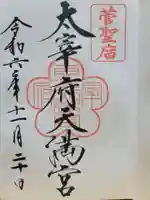 菅聖庿
太宰府天満宮
令和六年十一月二十日